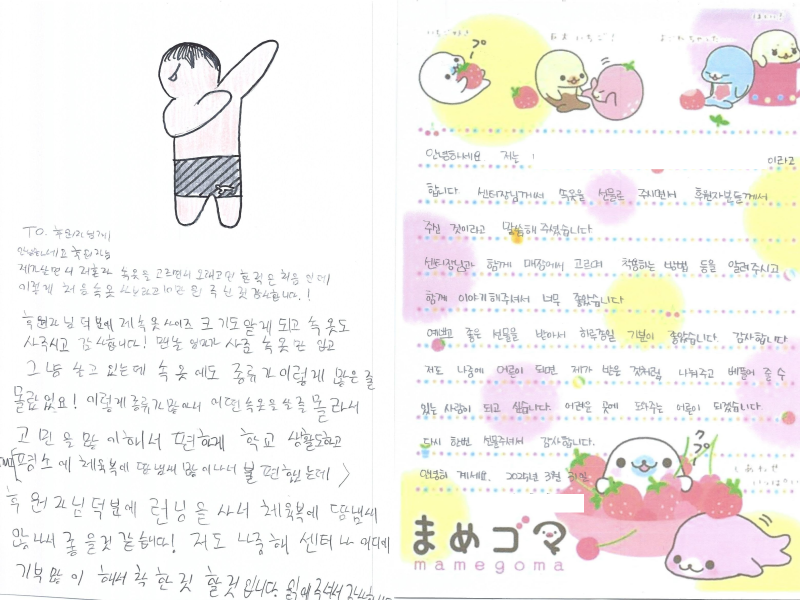 TO. 후원자님께
안녕하세요 후원자님
제가 살면서 저혼자 속옷을 고르면서 오래고민 한적은 처음인데
이렇게 처음 속옷 사보라고 10만원 주신것 감사합니다.!
후원자님 덕분에 제속옷 사이즈 크기도 알게 되고 속옷도
사주시고 감사합니다! 맨날 엄마가 사준 속옷만 입고
그냥 살고 있는데 속옷에도 종류가 이렇게 많은 줄
몰랐었요! 이렇게 종류가 많아서 어떤 속옷을 살줄 몰라서
고민을 많이해서 편하게 학교 생활도하고
평소에 체육복에 땀냄새 많이나서 불편했는데
후원자님덕분에 런닝을 사서 체육복에 땀냄새
않나서 좋을것 같습니다! 저도 나중에 센터나 어디에
기부 많이 해서 착한 짓 할것 입니다. 읽어주셔서
いちご好き
大きいちご!
よごれちゃった
안녕하세요 저는 이라고
합니다 센터장님께서 속옷을 선물로 주시면서 후원자분들께서
주신 것이라고 말씀해 주셨습니다
센터장님과 함께 매장에서 고르며 착용하는 방법 등을 알려주시고
함께 이야기해주셔서 너무 좋았습니다
예쁘고 좋은 선물을 받아서 하루종일 기분이 좋았습니다. 감사합니다
저도 나중에 어른이 되면 제가 받은 것처럼 나눠주고 베풀어 줄 수
있는 사람이 되고 싶습니다. 어려운 곳에 도와주는 어른이 되겠습니다.
다시 한번 선물주셔서 감사합니다.
안녕히 계세요. 2025년 3월
しあわせ
いっぱい
まめゴマ
mamegoma